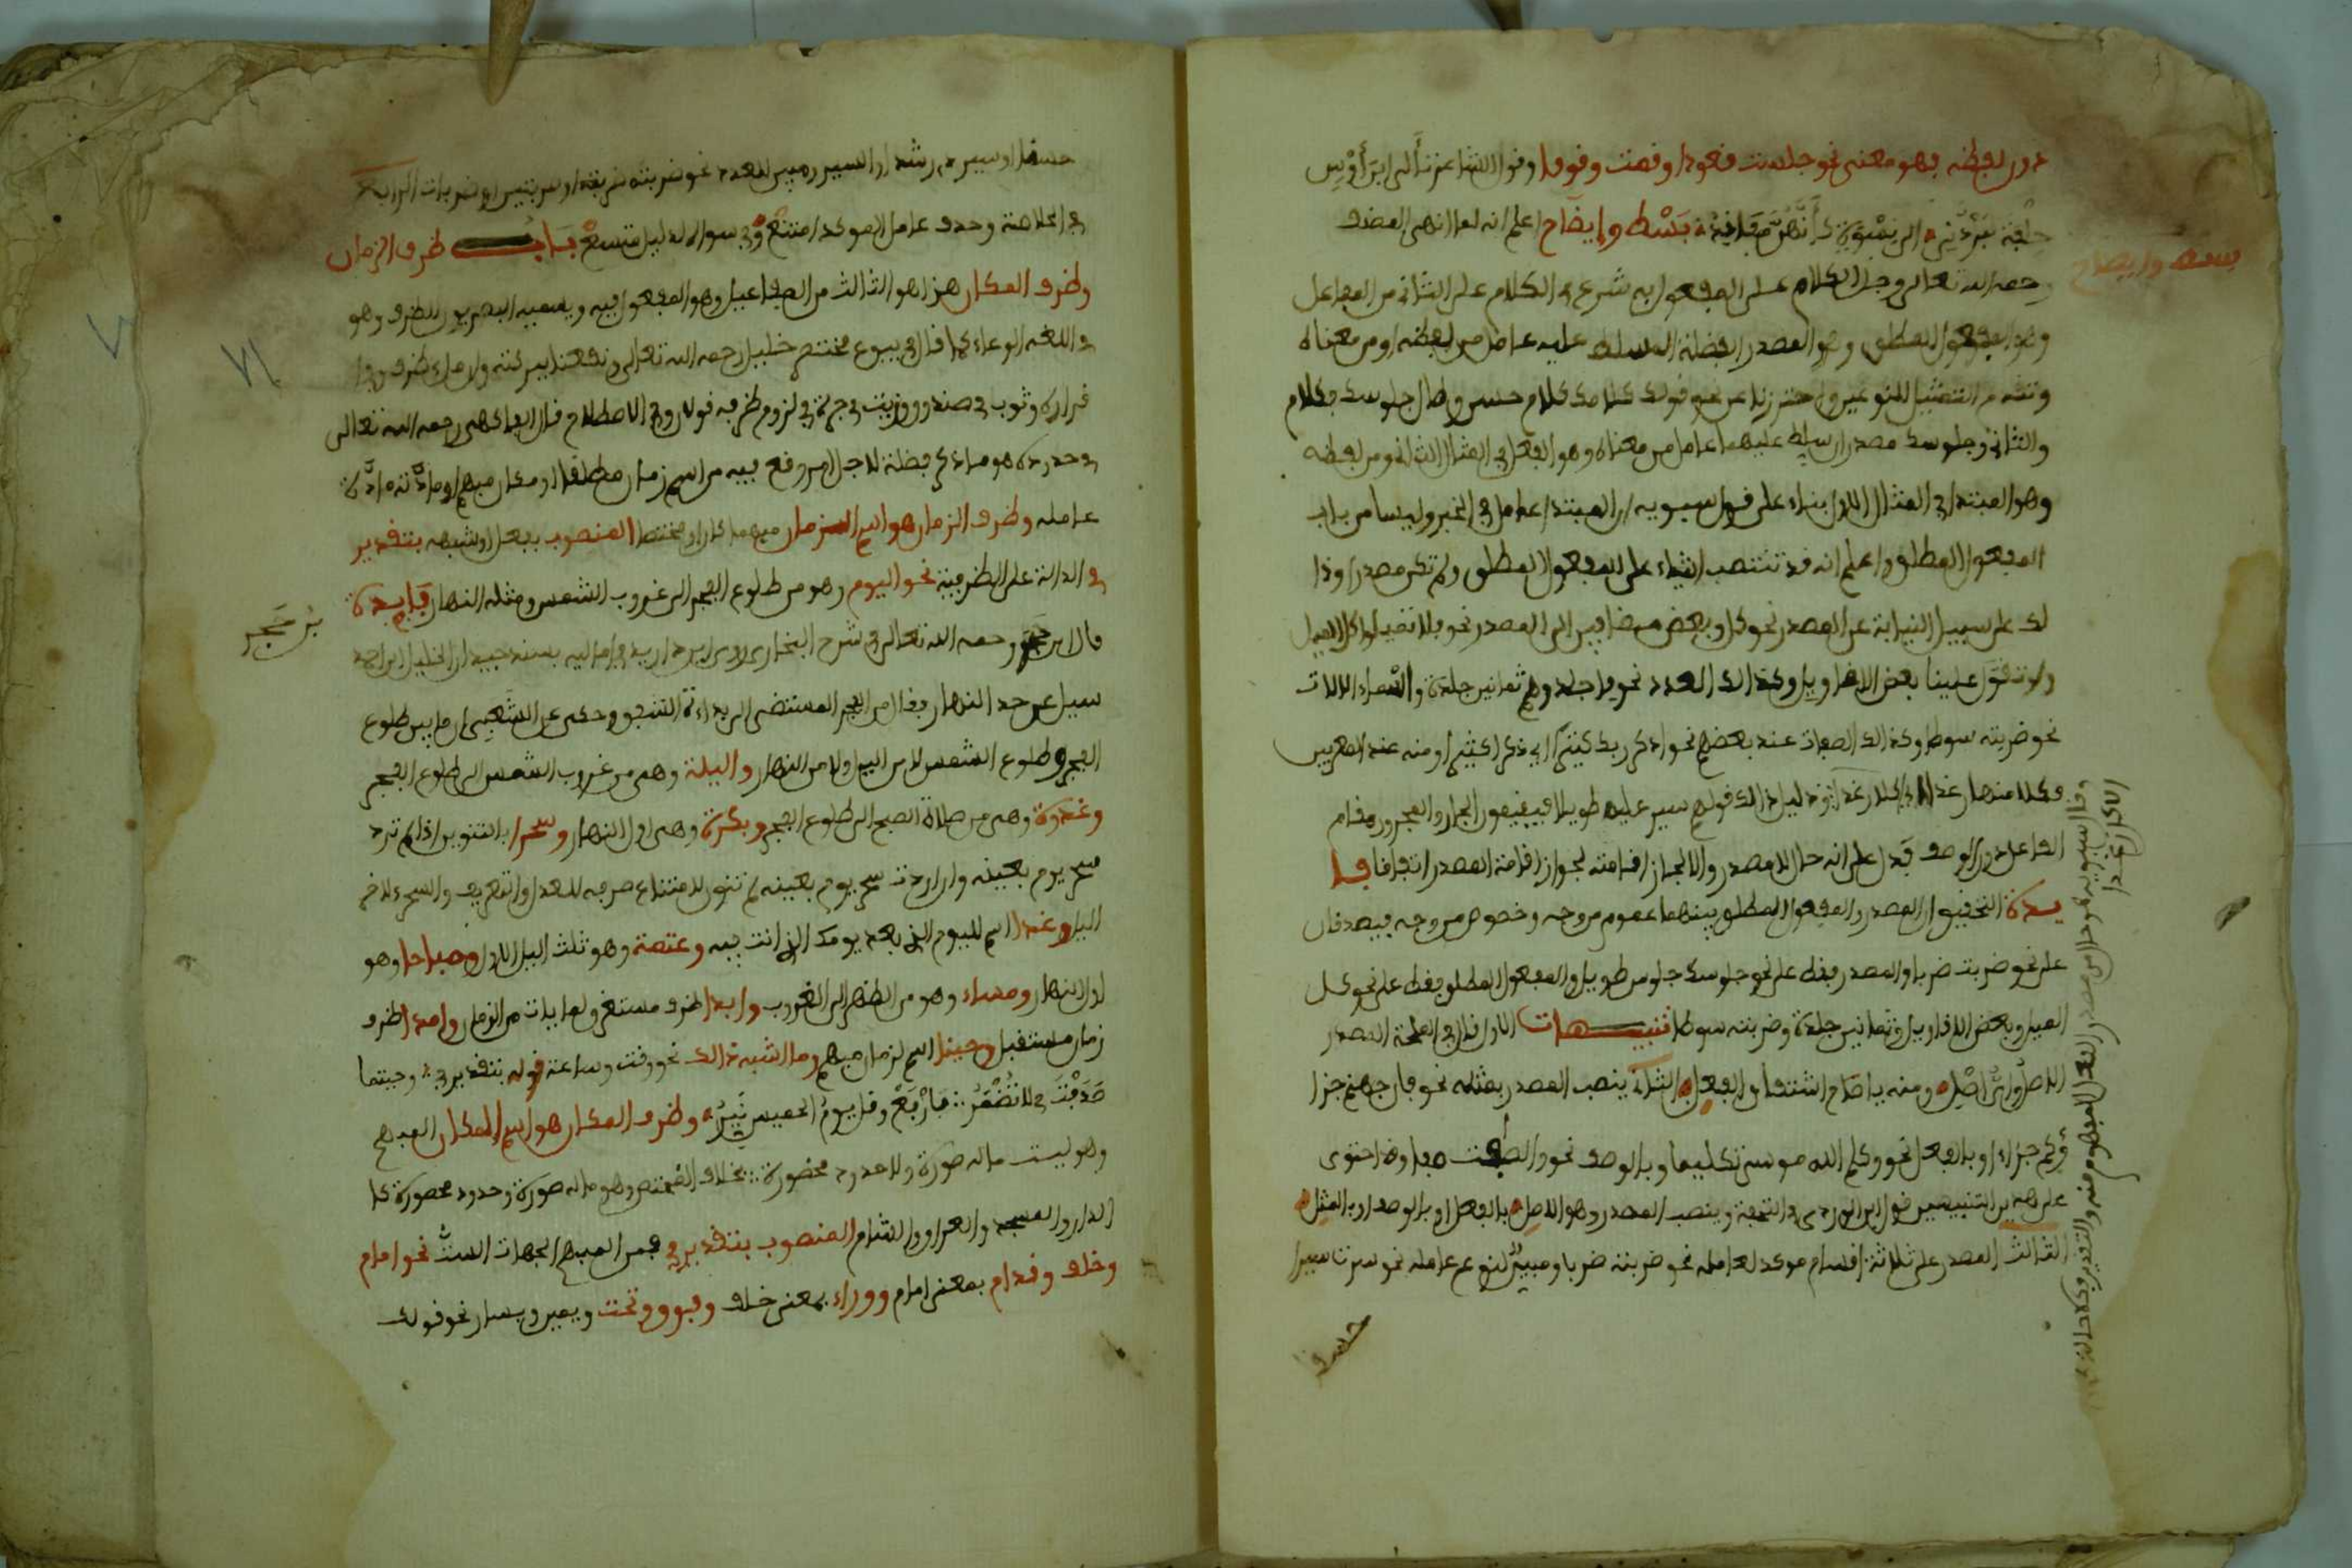 دون لفظه فهو معنوي نحو جلست قعودا وقمت وقوفا وقول الشاعر تألى ابن أوس
حلفة ليردني الى نسوة كأنهن مفايد بسط وإيضاح اعلم انه لما انهى المصنف
بسط وايضاح
رحمه الله تعالى وجل الكلام على المفعول به شرع في الكلام على الثاني من المفاعل
وهو المفعول المطلق وهو المصدر الفضلة المسلط عليه عامل من لفظه او من معناه
وتقدم التمثيل للنوعين واحترزنا عن نحو قولك كلامك كلام حسن وطال جلوسك فكلام
والثاني وجلوسك مصدران سلط عليهما عامل من معناه وهو الفعل في المثال الثاني ومن لفظه
وهو المبتدا في المثال الاول بناء على قول سيبويه ان المبتدا عامل في الخبر وليسا من باب
المفعول المطلق واعلم انه قد تنتصب اشياء على المفعول المطلق ولم تكن مصدرا وذا
لك على سبيل النيابة عن المصدر نحو كل وبعض مضافين الى المصدر نحو فلا تميلوا كل الميل
ولو تقول علينا بعض الاقاويل وكذالك العدد نحو فاجلدوهم ثمانين جلدة واسماء الالات
نحو ضربته سوطا وكذالك الصفات عند بعضهم نحو واذكر ربك كثيرا اي ذكرا كثيرا ومنه عند المعربين
وكلا منها رغدا اي اكلا رغدا ودليل ذالك قولهم سير عليه طويلا فيقيمون الجار والمجرور مقام
الفاعل دون الوصف فدل على انه حال لا مصدر والا لجاز اقامته لجواز اقامة المصدر اتفاقا فا
يدة التحقيق ان المصدر والمفعول المطلق بينهما عموم من وجه وخصوص من وجه فيصدقان
على نحو ضربت ضربا والمصدر فقط على نحو جلوسك جلوس طويل والمفعول المطلق فقط على نحو كل
الميل وبعض الاقاويل وثمانين جلدة وضربته سوطا تنبيهات الاول قال في الملحة المصدر
الاصل واي اصل ومنه يا صاح اشتقاق الفعل الثاني ينصب المصدر بمثله نحو فان جهنم جزا
ؤكم جزاء او بالفعل نحو وكلم الله موسى تكليما وبالوصف نحو والصافات صفا وقد احتوى
على هذين التنبيهين قول ابن الوردي في التحفة وينصب المصدر وهو الاصل بالفعل او بالوصف او بالمثل
الثالث المصدر على ثلاثة اقسام موكد لعامله نحو ضربته ضربا ومبين لنوع عامله نحو سرت سيرا
حسنا
حسنا او سير ذي رشد او السير ومبين للعدد نحو ضربته ضربة او ضربتين او ضربات الرابع
في الخلاصة وحذف عامل الموكد امتنع وفي سواه لدليل متسع باب ظرف الزمان
وظرف المكان هذا هو الثالث من المفاعيل وهو المفعول فيه ويسميه البصريون الظرف وهو
في اللغة الوعاء كما قال في بيوع مختصر خليل رحمه الله تعالى
وثوب في صندوق وزيت في جرة في لزوم ظرفه قولان وفي الاصطلاح قال الفاكهي رحمه الله تعالى
في حدوده هو ما ذكر فضلة لاجل امر وقع فيه من اسم زمان مطلقا او مكان مبهم او مادته مادة
عامله وظرف الزمان هو اسم الزمان مبهما كان او مختصا المنصوب بفعل او شبهه بتقدير
في الدالة على الظرفية نحو اليوم وهو من طلوع الفجر الى غروب الشمس ومثله النهار فايدة
بن حجر
قال ابن حجر رحمه الله تعالى في شرح البخاري روى ابن دريد في اماليه بسند جيد ان الخليل بن احمد
سيل عن حد النهار فقال من الفجر المستضي الى بداءة الشفق وحكي عن الشعبي ان ما بين طلوع
الفجر وطلوع الشمس لا من الليل ولا من النهار والليلة وهي من غروب الشمس الى طلوع الفجر
وغدوة وهي من صلاة الصبح الى طلوع الفجر وبكرة وهي اول النهار وسحرا بالتنوين اذا لم ترد
سحر يوم بعينه وان اردت سحر يوم بعينه لم تنون لامتناع صرفه للعدل والتعريف والسحر اخر
اليل وغدا اسم لليوم الذي بعد يومك الذي انت فيه وعتمة وهو ثلث اليل الاول وصباحا وهو
اول النهار ومساء وهو من الظهر الى الغروب وابدا ظرف مستغرق لما يات من الزمان وامدا ظرف
زمان مستقبل وحينا اسم لزمان مبهم وما اشبه ذالك نحو وقت وساعة قوله بتقدير في وحيثما
وظرف المكان هو اسم المكان المبهم
وهو ليست ماله صورة ولا حدود محصورة بخلاف المختص وهو ماله صورة وحدود محصورة كا
الدار والمسجد والعراق والشام المنصوب بتقدير في فمن المبهم الجهات الست نحو امام
وخلف وقدام بمعنى امام ووراء بمعنى خلف وفوق وتحت ويمين ويسار نحو قولك